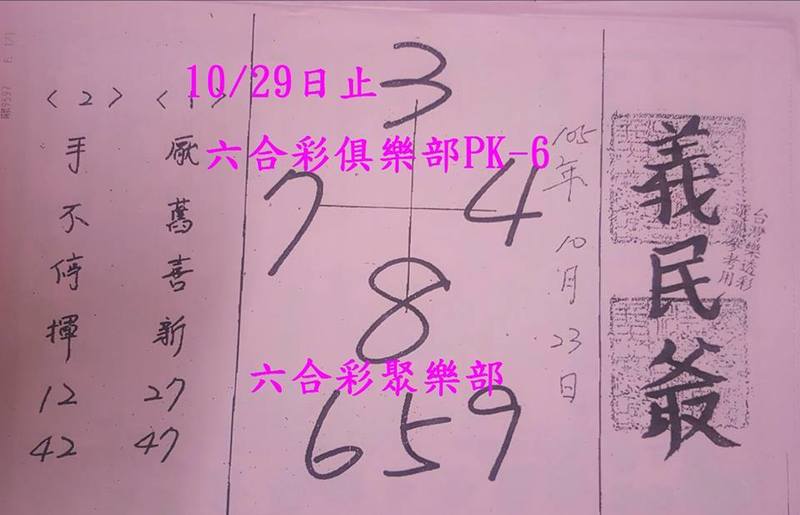 義民爺
台灣樂透彩
105年10月23日
3
7 4
8
659
〈1〉
厰萬喜新
27
47
〈2〉
手不停揮
12
42
10/29日止
六合彩俱樂部PK-6
六合彩聚樂部